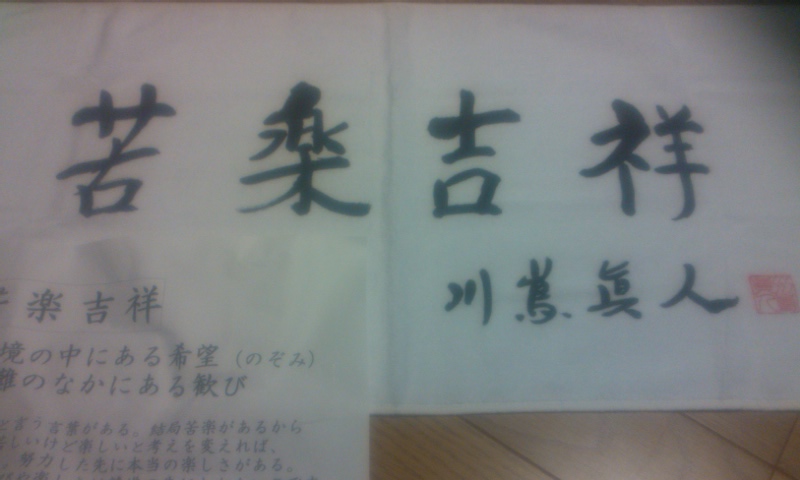 苦楽吉祥
川嶌眞人
楽吉祥
境の中にある希望（のぞみ）
難のなかにある歓び
と言う言葉がある。結局苦楽があるから
苦しいけど楽しいと考えを変えれば、
努力した先に本当の楽しさがある。